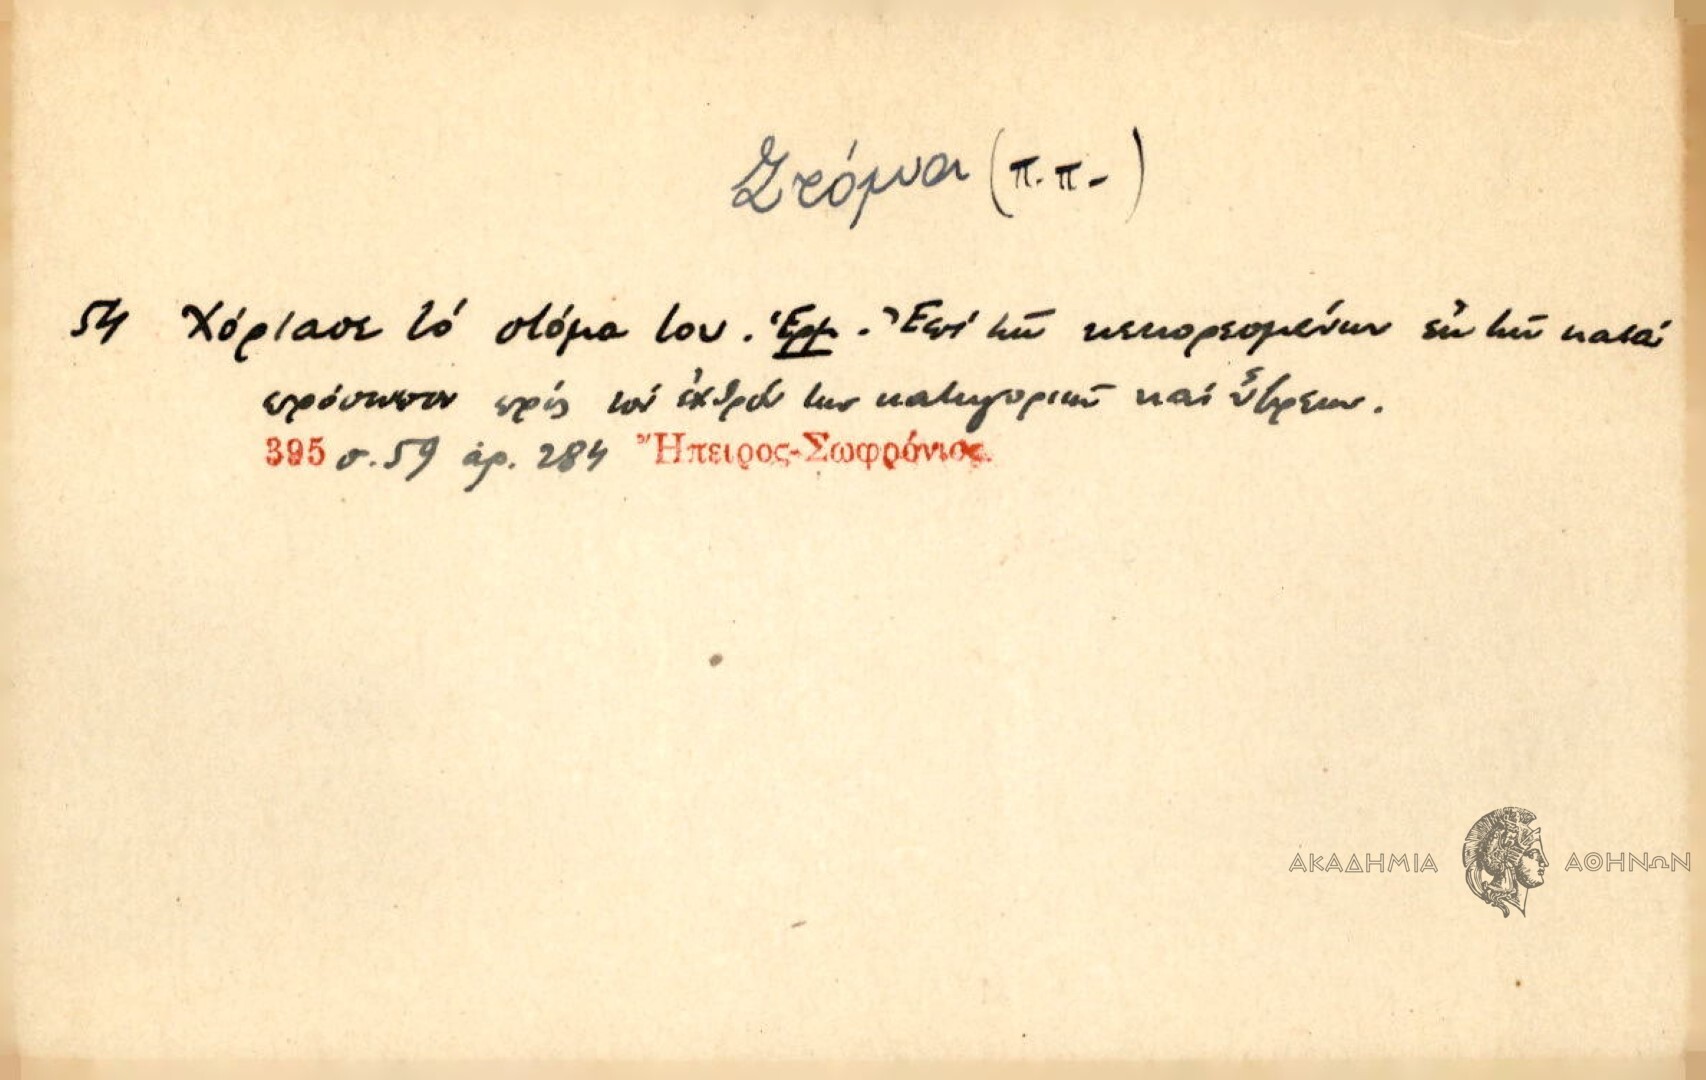 Στόμα (π.π.)
54 Χόρτασε τό στόμα του. Ἑρμ. Ἐπί τῶν κεκορεσμένων ἐκ τῶν κατά
πρόσωπον πρός τόν ἐχθρόν των κατηγοριῶν καί ὕβρεων.
395 σ. 59 ἀρ. 284 Ἤπειρος-Σωφρόνιος.
ΑΚΑΔΗΜΙΑ ΑΘΗΝΩΝ